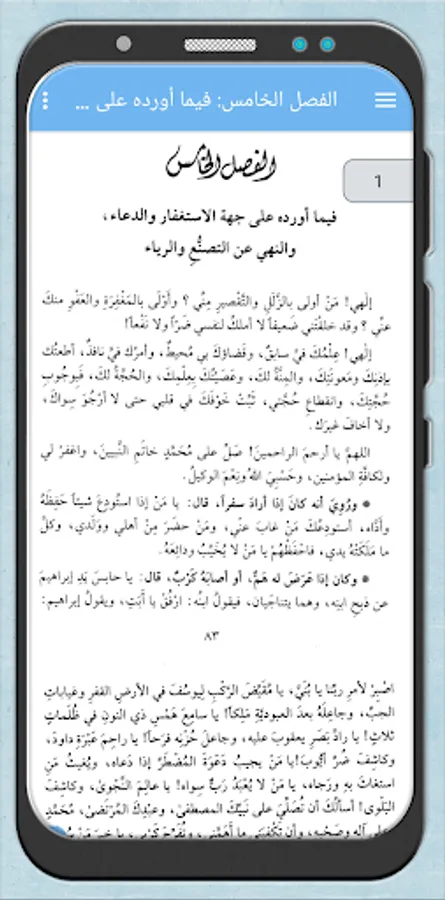 الفصل الخامس: فيما أورده على ...
الفصل الخامس
1
فيما أورده على جهة الاستغفار والدعاء،
والنهي عن التصنُّعِ والرياء
إلٰهي! مَنْ أولى بالزَّلَلِ والتَّقْصيرِ مِنِّي ؟ وأَوْلَى بالمَغْفِرَةِ والعَفْوِ منكَ
عنِّي ؟ وقد خلقْتَني ضَعيفاً لا أملكُ لنفسي ضَرّاً ولا نَفْعاً!
إلٰهي! عِلمُكَ فيَّ سابقٌ، وقَضاؤكَ بي مُحيطٌ، وأمرُك فيَّ نافذٌ، أطعتُكَ
بإذنِكَ ومَعونَتِكَ، والمِنَّةُ لكَ، وعَصَيْتُكَ بعِلْمِكَ، والحُجَّةُ لكَ، فبوجُوبِ
حُجَّتِكَ، وانقطاعِ حُجَّتي، ثَبِّتْ خَوْفَكَ في قلبي حتى لا أرْجُوَ سِواكَ،
ولا أخافَ غيرَكَ.
اللهمَّ يا أرحمَ الراحمينَ! صَلِّ على مُحَمَّدٍ خاتَمِ النَّبيينَ، واغفر لي
ولكافَّةِ المؤمنين، وحَسْبِيَ اللهُ ونِعْمَ الوكيلُ.
● ورُوِيَ أنه كانَ إذا أرادَ سفراً، قال: يا مَنْ إذا استُودِعَ شيئاً حَفِظَهُ
وأدَّاه، أستودِعُكَ مَنْ غابَ عنِّي، ومَنْ حضَرَ مِنْ أهلي ووَلَدي، وكلَّ
ما مَلَكَتْهُ يدي، فاحْفَظْهُم يا مَنْ لا يُخَيِّبُ ودائِعَهُ.
● وكان إذا عَرَضَ له هَمٌّ، أو أصابَهُ كَرْبٌ، قال: يا حابسَ يَدِ إبراهيمَ
عن ذبحِ ابنِه، وهما يتناجَيان، فيقولُ ابنُه: ارْفُقْ يا أَبَتِ، ويقولُ إبراهيم:
٨٣
اصْبِرْ لأمرِ ربِّنا يا بُنَيَّ، يا مُقَيِّضَ الرَّكْبِ لِيوسُفَ في الأرضِ القفرِ وغياباتِ
الجبِّ، وجاعِلَهُ بعدَ العبوديَّةِ مَلِكاً! يا سامِعَ هَمْسِ ذي النونِ في ظُلُماتٍ
ثلاثٍ! يا رادَّ بَصَرِ يعقوبَ عليه، وجاعلَ حُزْنِه فرَحاً! يا راحِمَ عَبْرَةِ داودَ،
وكاشفَ ضُرِّ أيُّوبَ! يا مَنْ يجيبُ دَعْوَةَ المُضْطَرِّ إذا دَعَاه، ويُغيثُ مَنِ
استغاثَ بهِ ورَجاه، يا مَنْ لا يُعْبَدُ ربٌّ سِواه! يا عالِمَ النَّجْوى، وكاشِفَ
البَلْوى! أسألُكَ أن تُصَلِّيَ على نَبِيِّكَ المصطفىٰ، وعبدِكَ المُرْتَضىٰ، مُحَمَّدٍ
وعلى آلِه وصَحْبِه، وأن تَكْفِيَني ما أهَمَّني، وتُفَرِّجَ كَرْبي، يا خيرَ مَنْ